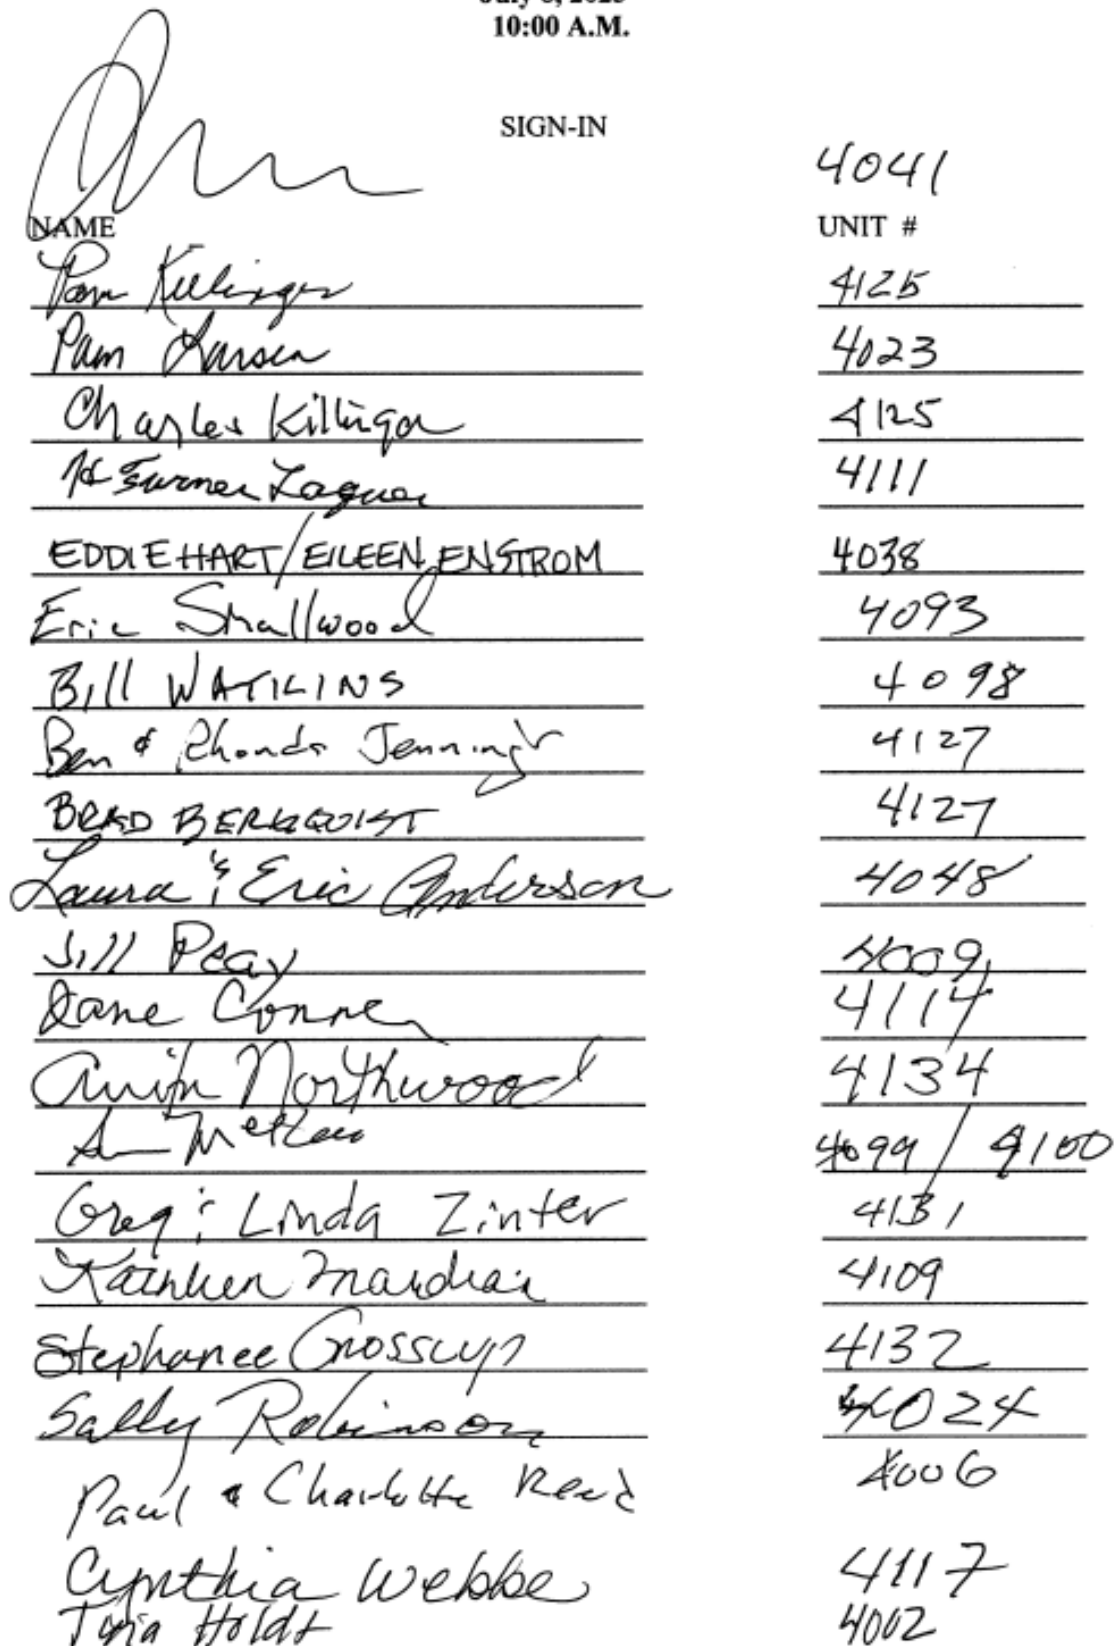 10:00 A.M.
SIGN-IN
4041
NAME UNIT #
Pam Killinger 4125
Pam Larsen 4023
Charles Killinger 4125
Turner 4111
EDDIE HART/EILEEN ENSTROM 4038
Eric Smallwood 4093
Bill WATKINS 4098
Ben & Rhonda Jennings 4127
BRAD BERGQUIST 4127
Laura & Eric Anderson 4048
Jill Peay 4009
Jane Conner 4114
Anita Northwood 4134
4099 / 4100
Greg & Linda Zinter 4131
Kathleen 4109
Stephanee Grosscup 4132
Sally Robinson 4024
Paul & Charlotte Read 4006
Cynthia Webbe 4117
Holdt 4002